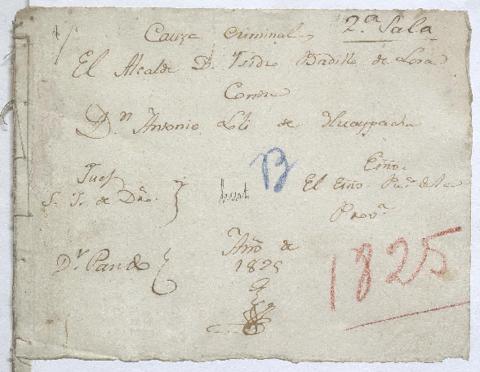 Causa Criminal 2.ª Sala
El Alcalde D. Isidro Badillo de Lora
Contra
D.n Antonio Loli de Huaypacha
Juez
S. J. de Dro.
B
Esño.
El Esño. de
Prov.ª
Dr. Pando
Año de
1825
1825